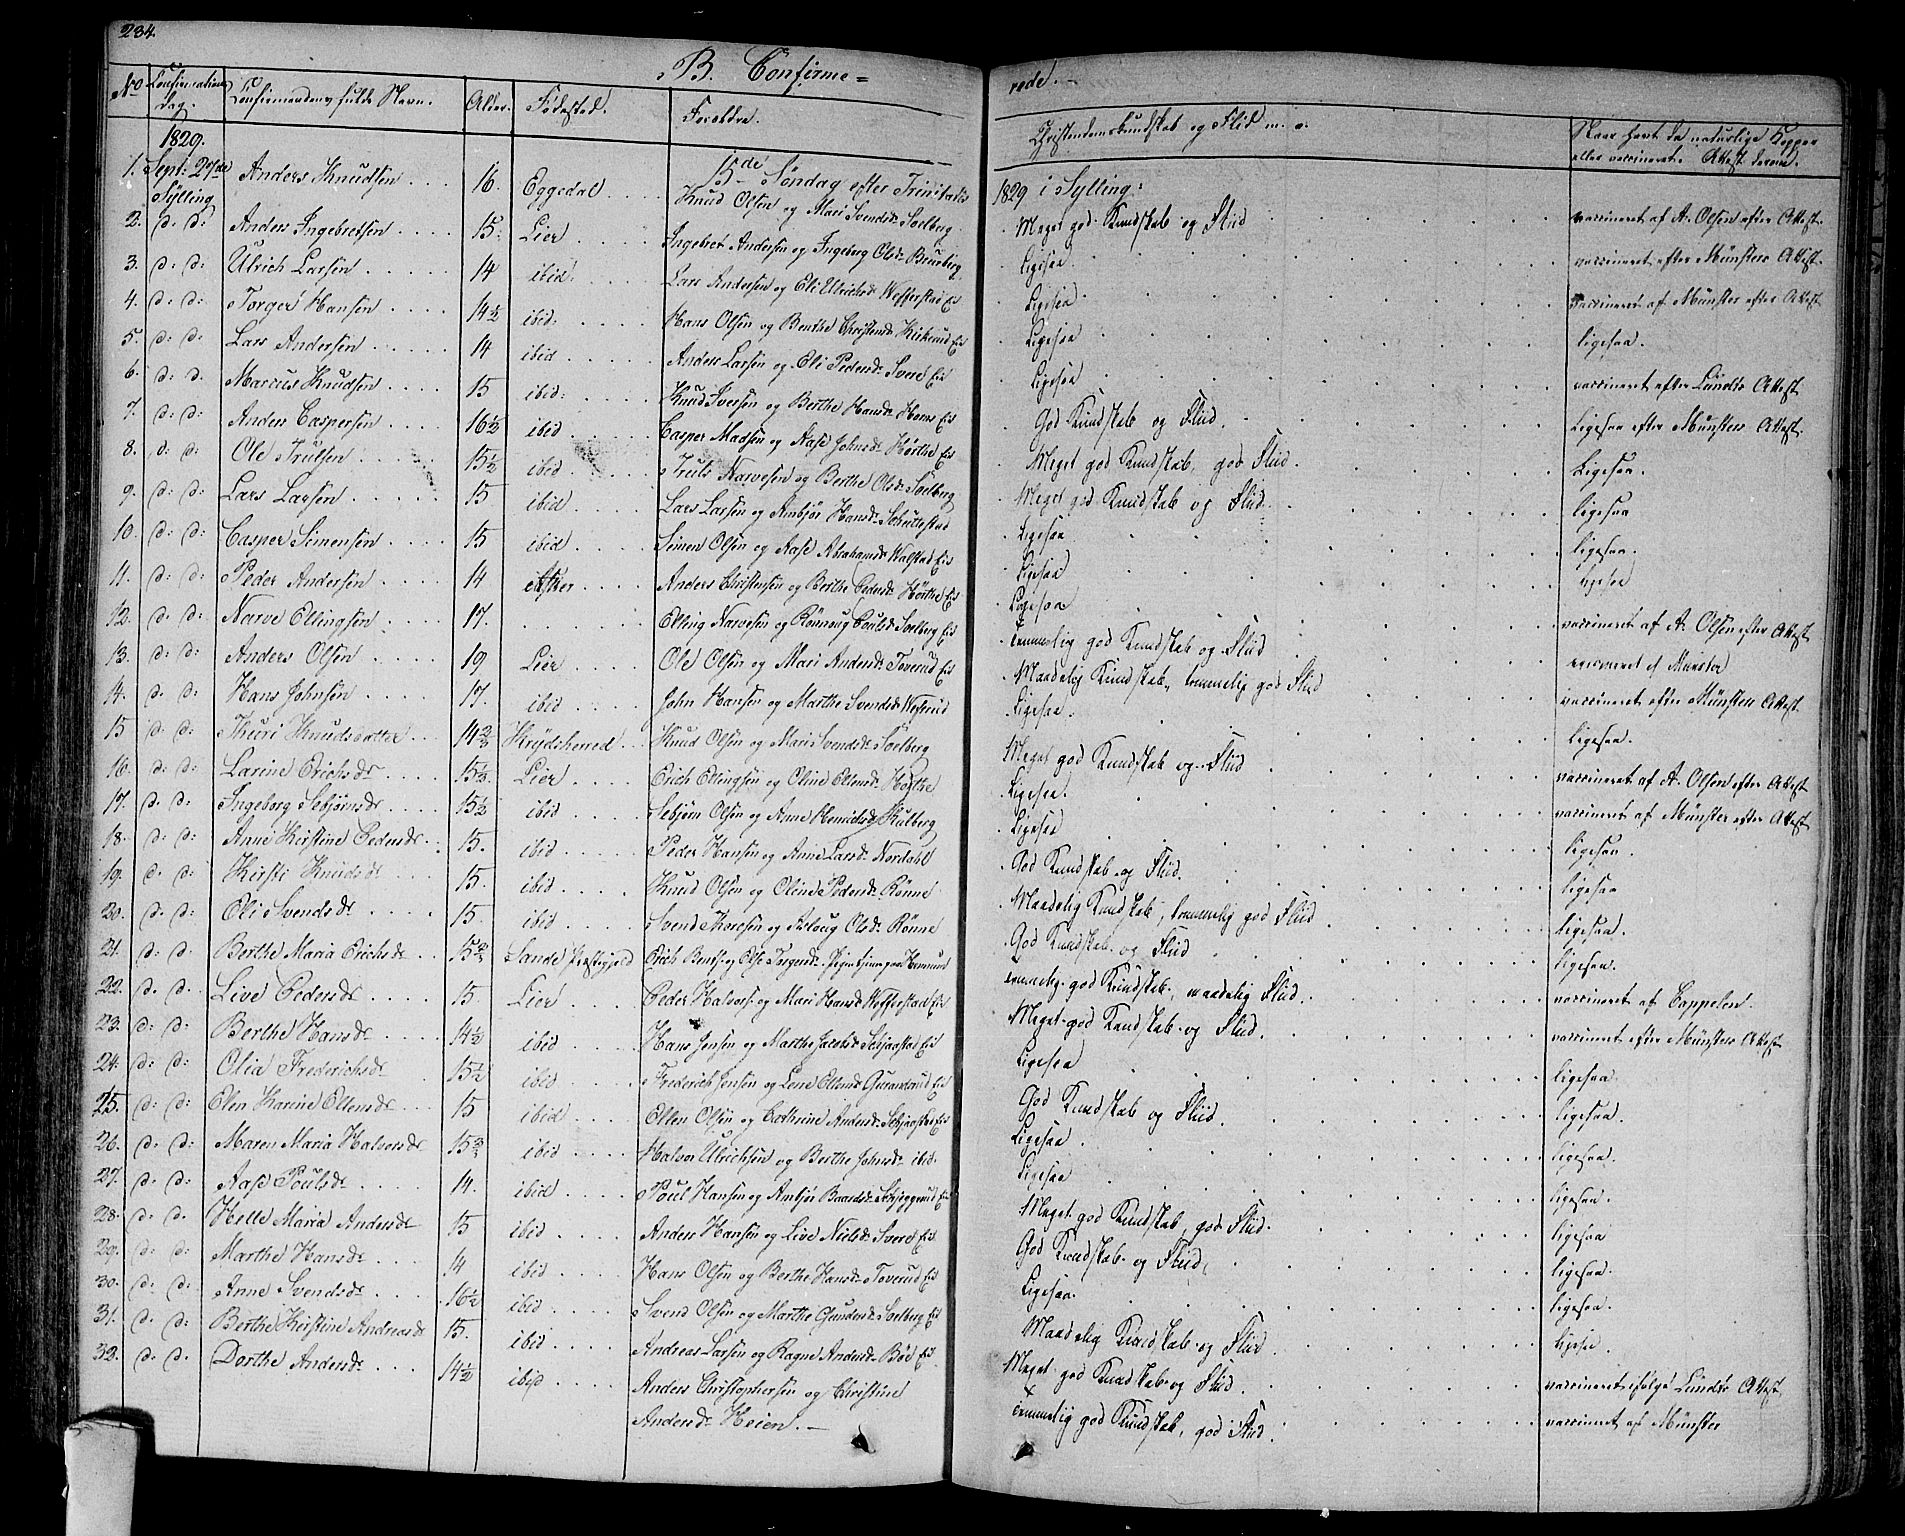 234.
B. Confirme=
rede.
No Confirmations Dag. Confirmandens fulde Navn. Alder. Fødested. Forældre. Christendomskundskab og Flid m. v. Naar havt de naturlige Kopper
eller vaccineret. Attest derom.
1829. 15de Søndag efter Trinitatis 1829 i Sylling:
1. Sept: 27de Sylling Anders Knudsen 16. Eggedal Knud Olsen og Mari Svendsd. Soelberg. Meget god Kundskab og Flid vaccineret af A. Olsen efter Attest.
2. d: d: Anders Ingebretsen 15. Lier Ingebret Andersen og Ingeborg Olsd: Bruberg Ligesaa vaccineret efter Münsters Attest.
3. d: d: Ulrich Larsen 14 ibid. Lars Andersen og Eli Ulrichsd. Wefferstad Ei Ligesaa vaccineret af Münster efter Attest
4. d: d: Torger Hansen 14½ ibid: Hans Olsen og Berthe Christensd. Kirkerud Ei Ligesaa ligesaa.
5. d: d: Lars Andersen 14 ibid Anders Larsen og Eli Pedersd. Svere Ei Ligesaa vaccineret efter Lunds Attest
6. d: d. Marcus Knudsen 15 ibid: Knud Iversen og Berthe Hansd. Horns Ei God Kundskab og Flid. Ligesaa efter Münsters Attest.
7. d: d: Anders Caspersen 16½ ibid Casper Madsen og Aase Johnsd. Hørthe Ei Meget god Kundskab, god Flid. Ligesaa.
8. d: d: Ole Trulsen 15½ ibid Truls Narvesen og Berthe Olsd. Soelberg Meget god Kundskab og Flid. ligesaa
9. d: d: Lars Larsen 15 ibid Lars Larsen og Ambjør Hansd. Schustestad Ligesaa ligesaa.
10. d: d: Casper Simensen 15 ibid Simen Olsen og Aase Abrahamsd. Walstad Ei Ligesaa ligesaa
11. d: d: Peder Andersen 14 Asker Anders Christensen og Berthe Pedersd. Hørthe Ei Ligesaa vaccineret af A. Olsen efter Attest
12. d: d: Narve Ellingsen 17. Elling Narvesen og Rønnaug Poulsd. Soelberg Ei temmelig god Kundskab og Flid vaccineret af Münster
13. d: d: Anders Olsen 19 Lier Ole Olsen og Mari Andersd. Toverud Ei Maadelig Kundskab, temmelig god Flid vaccineret efter Münsters Attest.
14. d. d: Hans Johnsen 17. ibid John Hansen og Marthe Svendsd. Westerud Ligesaa. ligesaa.
15 d: d: Thuri Knudsdatter 14⅔ Krydsherred Knud Olsen og Mari Svendsd. Soelberg Meget god Kundskab og Flid vaccineret af A. Olsen efter Attest
16. d. d: Larine Erichsd. 15½. Lier Erich Ellingsen og Oline Ellensd. Hørthe Ligesaa. vaccineret af Münster efter Attest
17. d. d: Ingeborg Sebjørnsd. 15½ ibid Sebjørn Olsen og Anne Henrichsd. Kulberg Ligesaa ligesaa.
18. d: d: Anne Kirstine Pedersd. 15. ibid Peder Hansen og Anne Larsd. Nordahl God Kundskab og Flid. ligesaa
19. d. d: Kirsti Knudsd. 15. ibid Knud Olsen og Oline Pedersd. Rønne Maadelig Kundskab, temmelig god Flid ligesaa.
20. d. d: Eli Svendsd. 15. ibid Svend Thoresen og Aslaug Olsd. Rønne God Kundskab og Flid ligesaa.
21. d: d: Berthe Maria Erichsd. 15¾ Sande Præstegjeld Erich Bents. og Else Torgersd. temmelig god Kundskab, maadelig Flid. vaccineret af Cappelen.
22. d. d: Live Pedersd. 15. Lier Peder Halvors. og Mari Hansd. Wefferstad Ei Meget god Kundskab og Flid. vaccineret efter Münsters Attest
23. d: d: Berthe Hansd. 14½ ibid Hans Jensen og Marthe Jacobsd. Schjaastad Ei Ligesaa ligesaa.
24. d: d: Olia Frederichsd. 15½ ibid Frederich Jensen og Lene Ellensd. God Kundskab og Flid. ligesaa.
25. d: d: Elen Karine Ellensd. 15 ibid Ellen Olsen og Cathrine Andersd. Schjaastad Ei Ligesaa. ligesaa.
26. d: d: Maren Maria Halvorsd. 15¾ ibid Halvor Ulrichsen og Berthe Johnsd. ibid. Ligesaa ligesaa.
27. d. d: Aase Poulsd. 14. ibid Poul Hansen og Ambjør Baardsd. Schjeggerud Ei Meget god Kundskab, god Flid. ligesaa
28. d: d: Helle Maria Andersd. 15 ibid Anders Hansen og Live Nielsd. Svere Ei God Kundskab og Flid. ligesaa.
29. d: d: Marthe Hansd. 14 ibid Hans Olsen og Berthe Hansd. Toverud Ei Ligesaa. ligesaa.
30. d: d: Anne Svendsd. 16½ ibid Svend Olsen og Marthe Gundersd. Soelberg Ei Maadelig Kundskab og Flid ligesaa
31. d. d: Berthe Kirstine Andreasd. 15. ibid Andreas Larsen og Ragne Andersd. Bøe Ei Meget god Kundskab og Flid. vaccineret ifølge Lunds Attest
32. d: d: Dorthe Andersd. 14½ ibid Anders Christophersen og Christine
Andersd. Heien. temmelig god Kundskab, god Flid. vaccineret af Münster